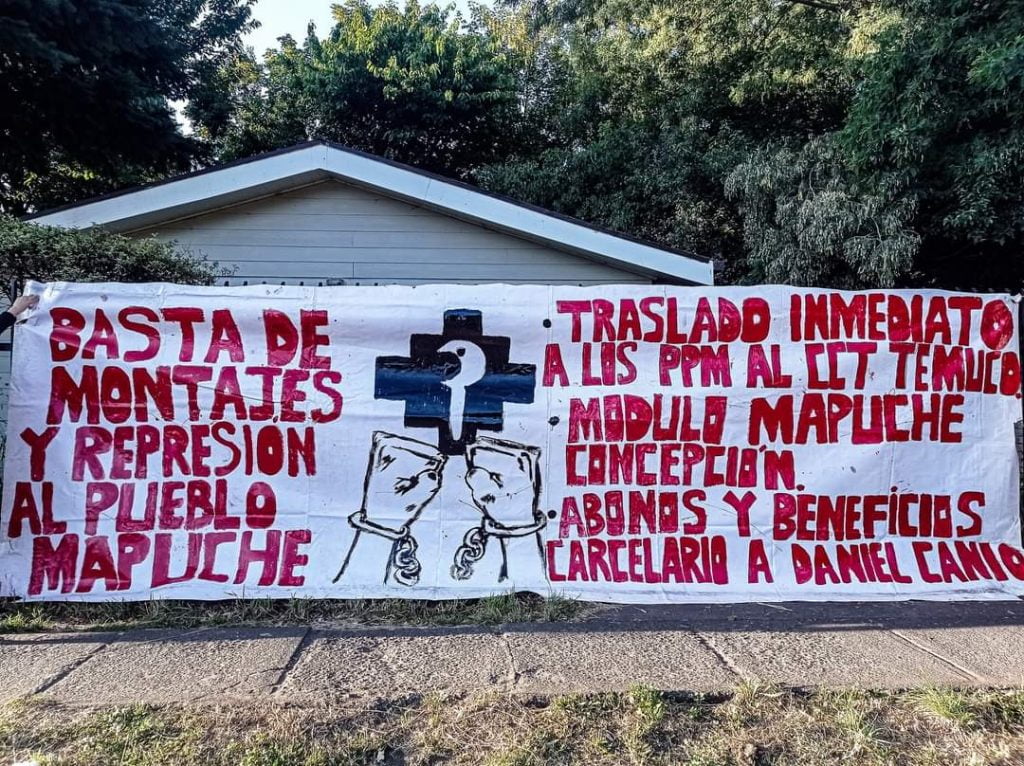 BASTA DE
MONTAJES
Y REPRESIÓN
AL PUEBLO
MAPUCHE
TRASLADO INMEDIATO
A LOS PPM AL CCT TEMUCO.
MODULO MAPUCHE
CONCEPCIÓN.
ABONOS Y BENEFICIOS
CARCELARIO A DANIEL CANIO